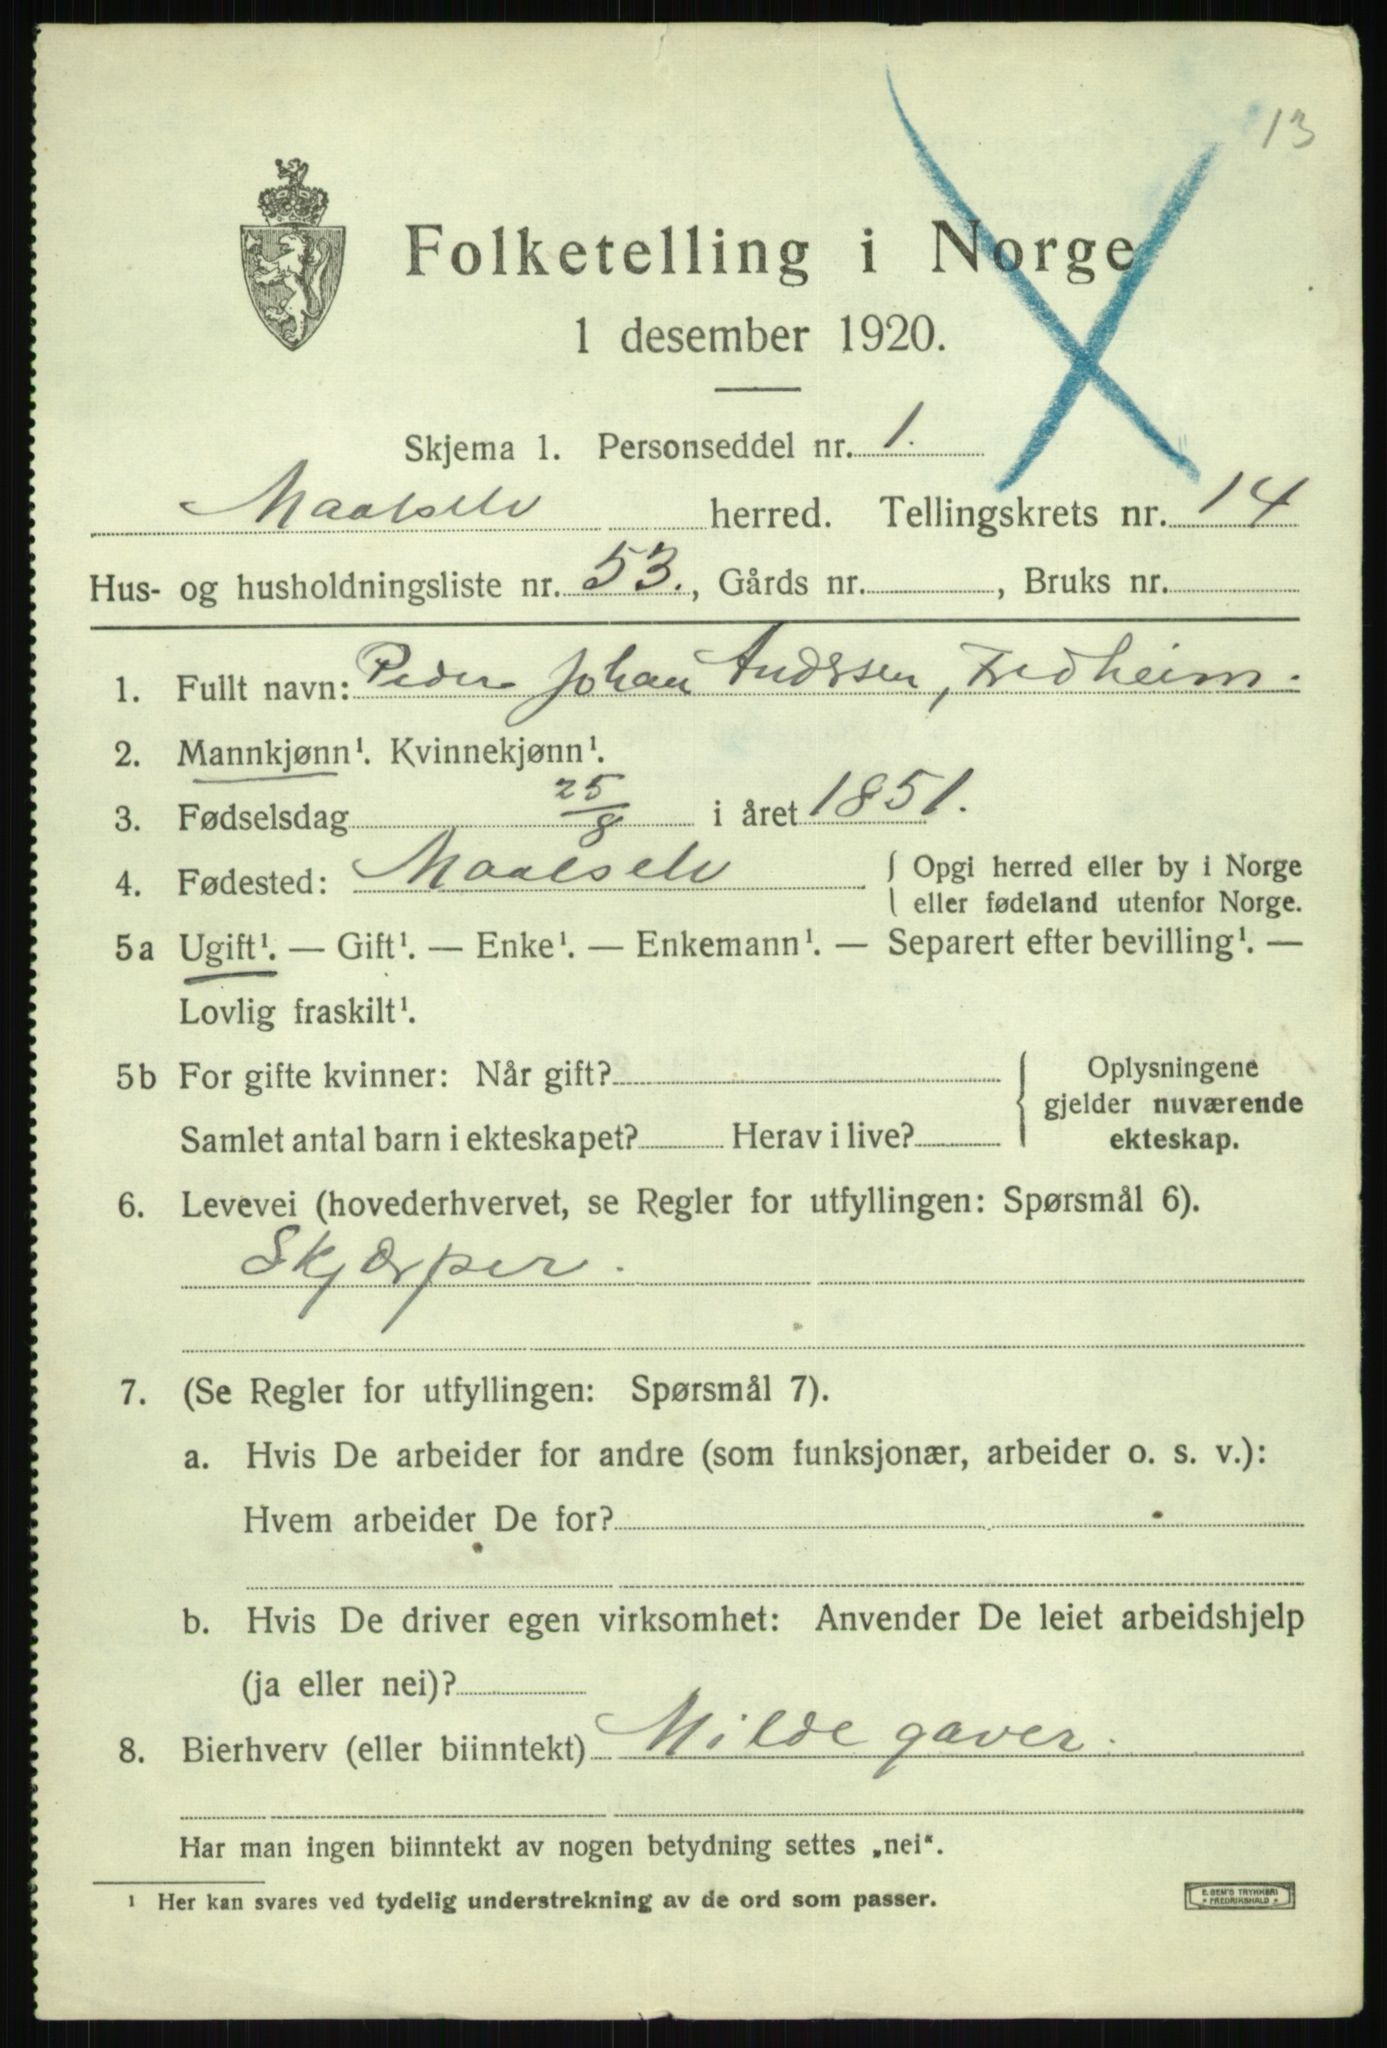 13
Folketelling i Norge
1 desember 1920.
Skjema 1. Personseddel nr. 1.
Maalselv herred. Tellingskrets nr. 14
Hus- og husholdningsliste nr. 53., Gårds nr. , Bruks nr.
1. Fullt navn: Peder Johan Andersen, Fredheim.
2. Mannkjønn¹. Kvinnekjønn¹.
3. Fødselsdag 25/8 i året 1851.
4. Fødested: Maalselv { Opgi herred eller by i Norge
eller fødeland utenfor Norge.
5a Ugift¹. — Gift¹. — Enke¹. — Enkemann¹. — Separert efter bevilling¹. —
Lovlig fraskilt¹.
5b For gifte kvinner: Når gift? { Oplysningene
gjelder nuværende
Samlet antal barn i ekteskapet? Herav i live? ekteskap.
6. Levevei (hovederhvervet, se Regler for utfyllingen: Spørsmål 6).
Skjærper.
7. (Se Regler for utfyllingen: Spørsmål 7).
a. Hvis De arbeider for andre (som funksjonær, arbeider o. s. v.):
Hvem arbeider De for?
b. Hvis De driver egen virksomhet: Anvender De leiet arbeidshjelp
(ja eller nei)?
8. Bierhverv (eller biinntekt) Milde gaver.
Har man ingen biinntekt av nogen betydning settes „nei“.
¹ Her kan svares ved tydelig understrekning av de ord som passer.
E. SEM'S TRYKKERI
FREDRIKSHALD